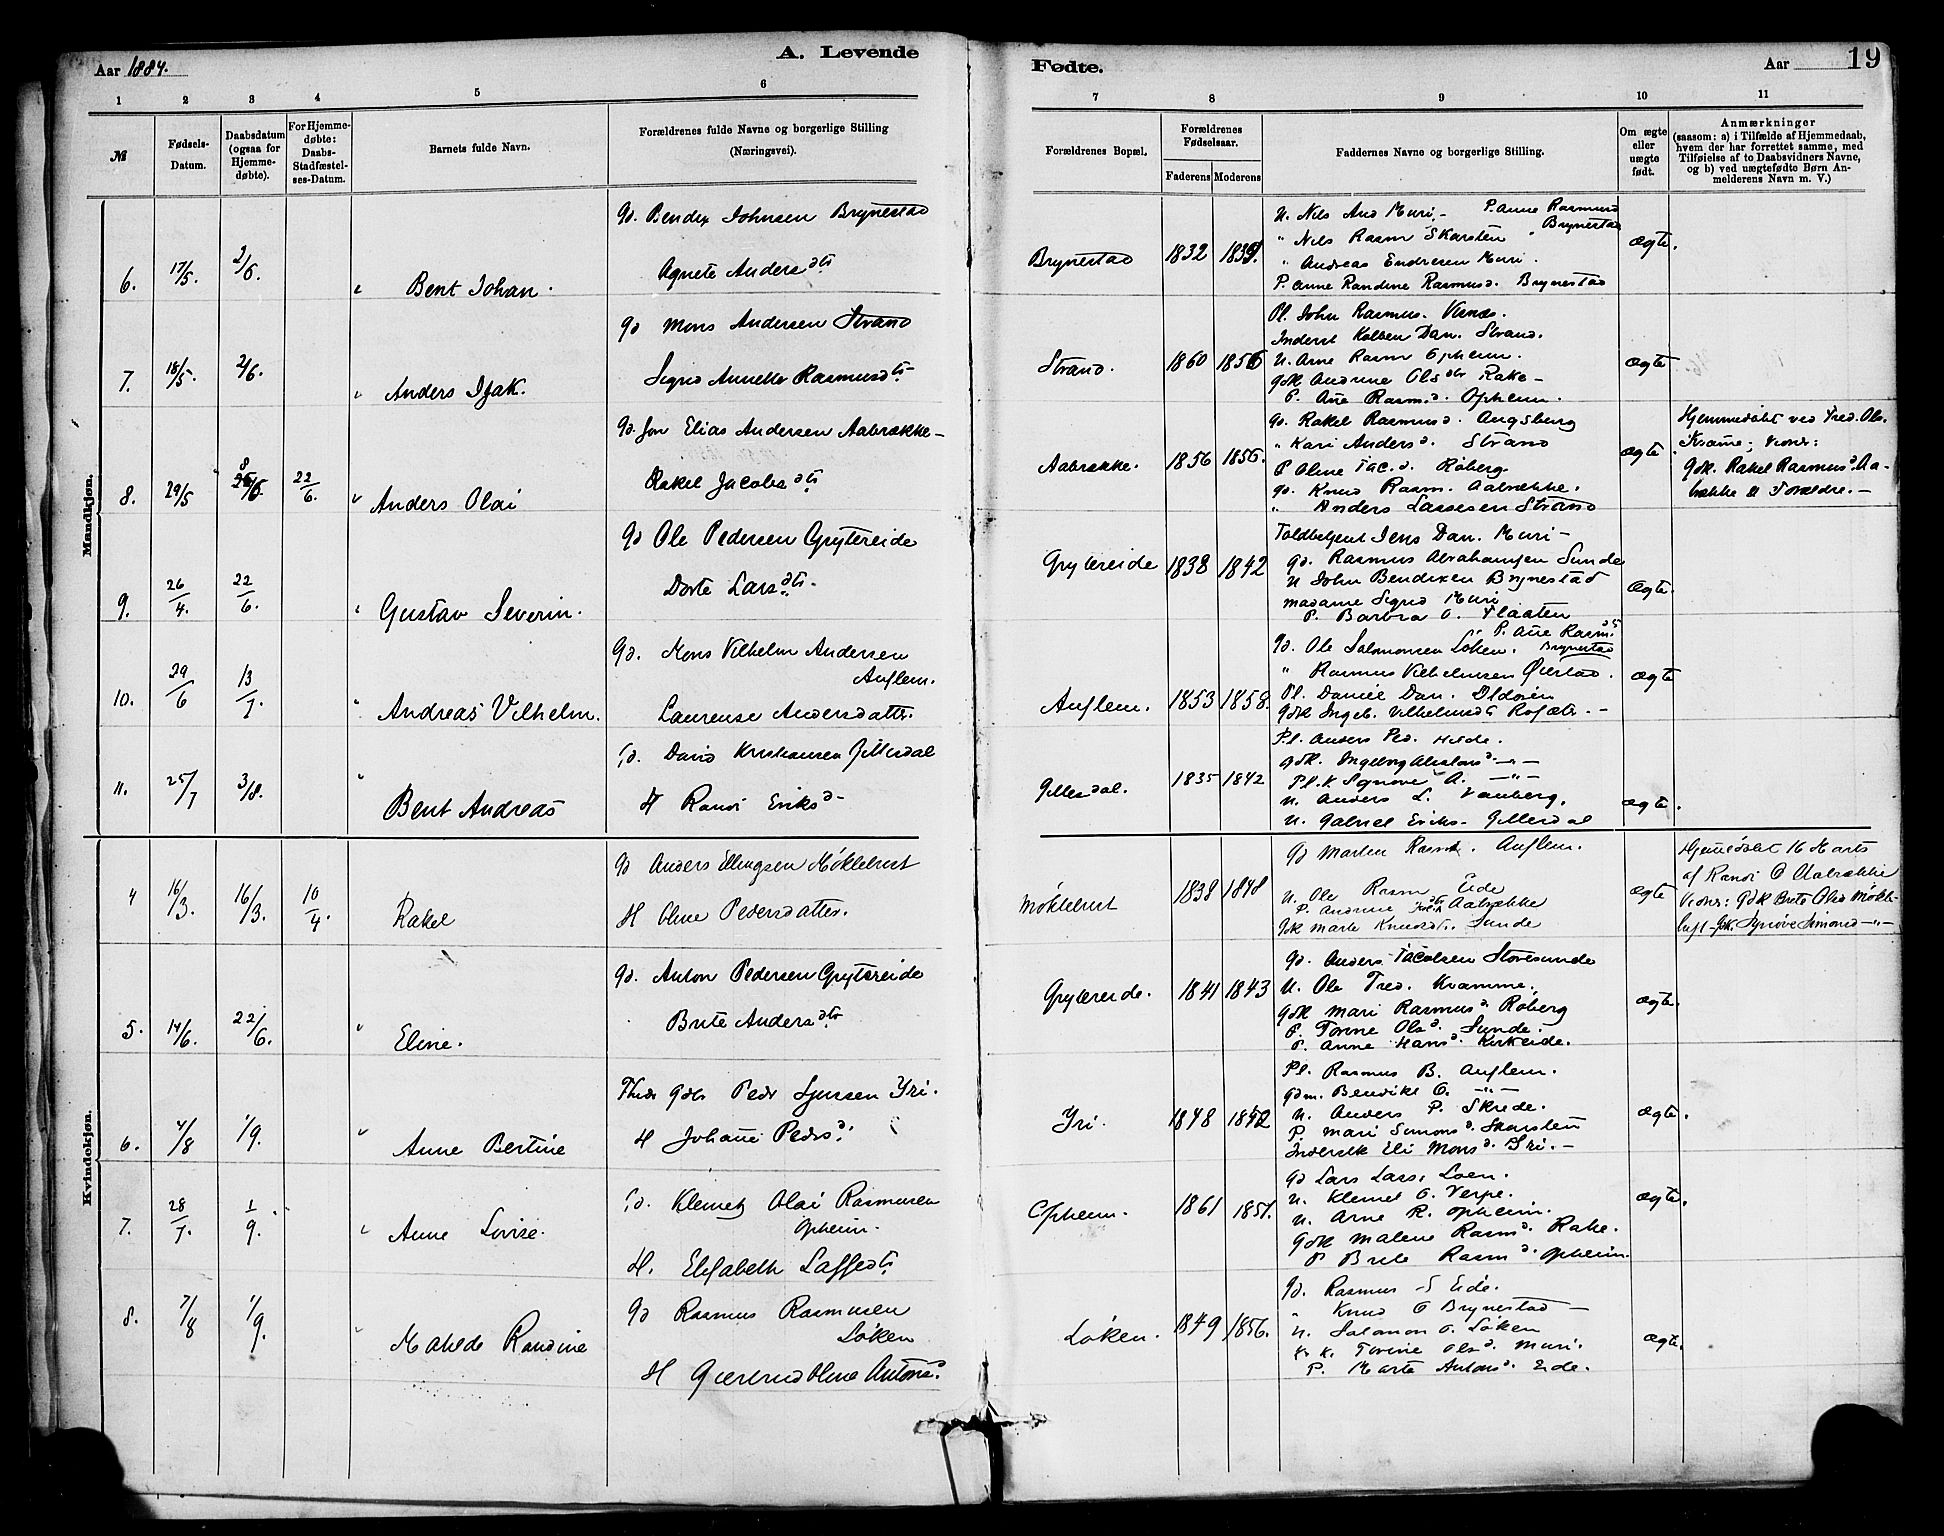 Aar 1884.
A. Levende
Fødte.
Aar
19
1 2 3 4 5 6 7 8 9 10 11
№
Fødsels-Datum.
Daabsdatum (ogsaa for Hjemme-døbte).
For Hjemme-døbte: Daabs-Stadfæstel-ses-Datum.
Barnets fulde Navn.
Forældrenes fulde Navne og borgerlige Stilling (Næringsvei).
Forældrenes Bopæl.
Forældrenes Fødselsaar.
Faderens Moderens
Faddernes Navne og borgerlige Stilling.
Om ægte eller uægte født.
Anmærkninger
(saasom: a) i Tilfælde af Hjemmedaab, hvem der har forrettet samme, med Tilføielse af to Daabsvidners Navne, og b) ved uægtefødte Børn An-melderens Navn m. V.)
Mandkjøn.
6. 17/5. 2/6. Bent Johan.
Gd. Bendix Johnsen Brynestad
Agnete Andersdtr
Brynestad 1832 1839.
U. Nils And Muri - P. Anne Rasmusd Brynestad
" Nils Rasm Skarsten
" Andreas Endresen Muri.
P. Anne Randine Rasmusd. Brynestad
ægte.
7. 18/5. 2/6. Anders Isak.
Gd Mons Andersen Strand
Sigrid Annette Rasmusdtr
Strand. 1860 1856
Pl. John Rasmus.
Inderst Kolben Dan. Strand.
U. Arne Rasm Opheim.
Gdk Andrine Olsdtr Rake -
P. Ane Rasmd. Opheim.
ægte
8. 29/5 8/6 22/6. Anders Olai
Gd. Jon Elias Andersen Aabrække -
Rakel Jacobsdtr
Aabrække. 1856 1855.
Gd. Rakel Rasmusd. Augsburg
" Kari Andersd. Strand
P Oline Jac.d. Roberg.
Gd. Knud Rasm. Aabrække.
" Anders Lassesen Strand
ægte
Hjemmedøbt ved Fred. Ols.
Kvame; Vidner:
Gdk. Rakel Rasmusd. Aa-
brække & Forældre. -
9. 26/4. 22/6. Gustav Severin.
Gd Ole Pedersen Grytereide
Dorte Larsdtr.
Grytereide 1838 1842
Toldbetjent Jens Dan. Muri -
Gd. Rasmus Abrahamsen Sunde
U John Bendixen Brynestad
Madame Sigrid Muri
P. Barbra O. Flaaten
P. Ane Rasmdtr Brynestad
ægte.
10. 29/6 13/7. Andreas Vilhelm.
Gd. Mons Vilhelm Andersen
Auflem.
Laurense Andersdatter.
Auflem. 1853 1858.
Gd. Ole Salomonsen Løken.
" Rasmus Vilhelmsen
Pl. Daniel Dan. Oldøren
Gdk Ingeb. Vilhelmsdtr
ægte
11. 25/7 3/8. Bent Andreas
Gd. David Kristiansen Gjillesdal
H Randi Eriksd -
Gillesdal. 1835 1842
Pl. Anders Ped. Hilde.
Gdk. Ingeborg
Pl.k Synøve A. -"-
U. Anders L. Vanberg.
U. Gabriel Eriks. Gillesdal
ægte.
Kvindekjøn.
4 16/3. 16/3. 10/4. Rakel
Gd Anders Ellingsen Møklebust
H Oline Pedersdatter.
Møklebust 1838 1848
Gd Marten Rasm. Auflem.
U. Ole Rasm Eide
P. Andrine Aabrække
Gdk Marte Knudsdtr. Sunde
ægte
Hjemmedøbt 16 Marts
af Randi O Aabrække
Vidner: Gdk Brite Olsd Møkle-
bust - Gdk. Synøve Simonsd -"-
5. 14/6. 22/6. Eline.
Gd. Anton Pedersen Grytereide
Brite Andersdtr
Grytereide. 1841 1843
Gd. Anders Jacobsen Storesunde
U. Ole Fred. Kvamme.
Gdk Mari Rasmusd. Roberg
P. Torine Olsd. Sunde.
P. Anne Hansd. Kirkeide.
ægte.
6. 4/8 1/9. Anne Bertine
Peder Sjursen Yri.
H Johanne Pedersd.
Yri. 1848 1852
Pl. Rasmus B. Auflem.
Gdm. Bendikt O. -"-
U. Anders P. Skrede.
P. Mari Simonsd. Skarsten
Inderstk Eli Monsd. Yri. -
ægte.
7. 28/7. 1/9. Anne Lovise.
Gd. Klemet Olai Rasmusen
Opheim.
H. Elisabeth Lassedtr
Opheim. 1861 1851.
Gd Lars Lars. Loen.
U. Klemet O. Verpe.
U. Arne R. Opheim.
Gdk Malene Rasmd. Rake.
P Brite Rasmd. Opheim.
ægte.
8. 7/8 1/9. Matilde Randine
Gd Rasmus Rasmusen
Løken
H Gjertrud Oline Antonsd.
Løken. 1849 1856.
Gd. Rasmus S Eide.
" Knud O Brynestad -
U. Salomon O. Løken
K.k. Torine Olsd. Muri.
P. Marta Antonsd. Eide.
ægte.